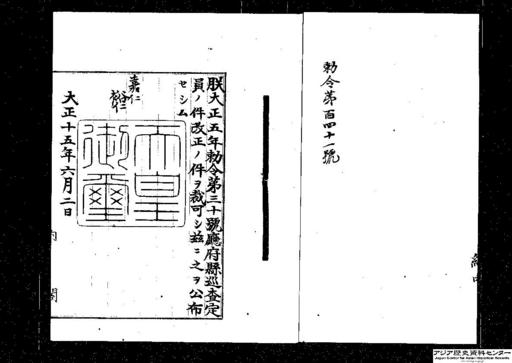 勅令第百四十一號
朕大正五年勅令第三十號廳府縣巡査定
員ノ件改正ノ件ヲ裁可シ茲ニ之ヲ公布
セシム
嘉仁
裕仁
天皇
御璽
大正十五年六月二日
内
閣
アジア歴史資料センター
Japan Center for Asian Historical Records